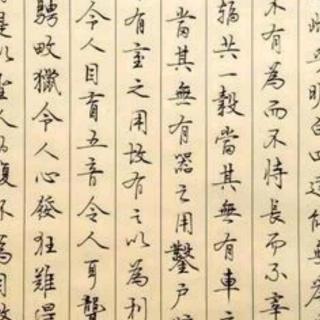 乎明白四達能無
不有為而不恃長而不宰
輻共一轂當其無有車之
當其無有器之用鑿戶牖
有室之用故有之以為利
令人目盲五音令人耳聾
騁畋獵令人心發狂難得
是以聖人為腹不為目故